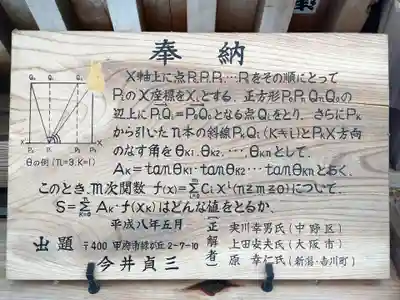 奉納
X軸上に点P₀P₁P₂…Pₙをその順にとって
Pᵢの X座標をXᵢとする. 正方形P₀PₙQₙQ₀の
辺上にPᵢQᵢ=P₀Q₀となる点Qᵢをとり, さらにPₖ
から引いたn本の斜線PₖQᵢ(K≠i)とPₖX方向
のなす角をθₖ₁・θₖ₂,…,θₖₙとして.
Aₖ=tanθₖ₁・tanθₖ₂…tanθₖₙとおく.
このとき, m次関数 f(x)=Σ CᵢXⁱ(n≧m≧0)について.
S=Σ Aₖ・f(Xₖ)はどんな値をとるか.
Q₀ Q₁ Q₂ Q₃
P₀ P₁ P₂ P₃ X
θの例(n=3,K=1)
平成八年五月
出題 〒400 甲府市緑が丘2-7-10
今井貞三
(正解者)
実川幸男氏(中野区)
上田安夫氏(大阪市)
原 幸仁氏(新潟・吉川町)